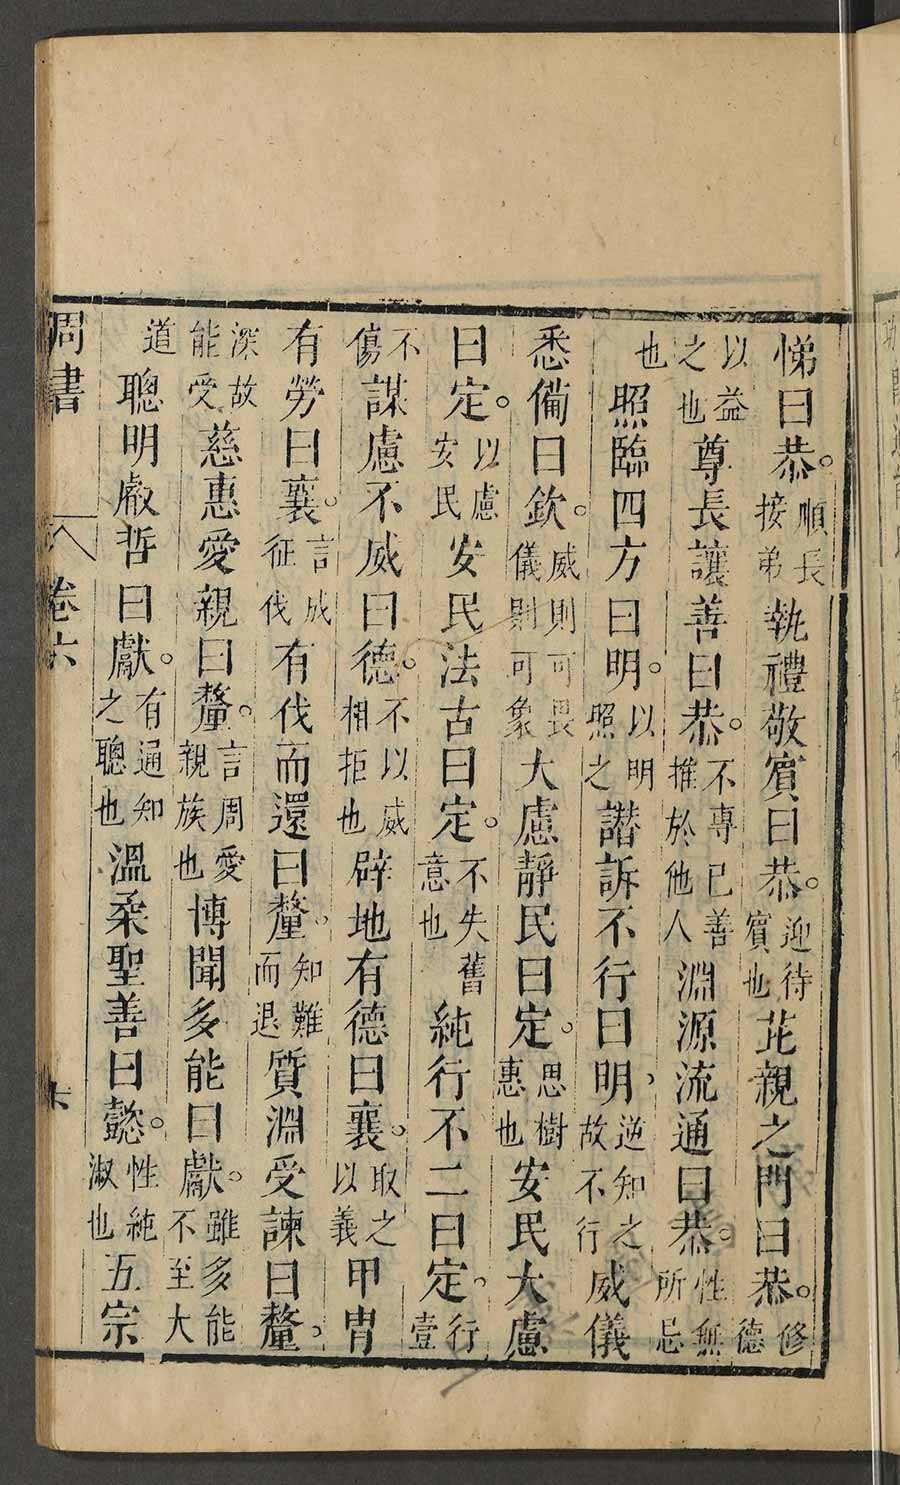 悌曰恭。順長接弟執禮敬賓曰恭。迎待賓也芘親之門曰恭。修德
以益之也尊長讓善曰恭。不專已善推於他人淵源流通曰恭。性無所忌
也照臨四方曰明。以明照之譖訴不行曰明。逆知之故不行威儀
悉備曰欽。威則可畏儀則可象大慮靜民曰定。思樹惠也安民大慮
曰定。以慮安民安民法古曰定。不失舊意也純行不二曰定。行壹
不傷謀慮不威曰德。不以威相拒也辟地有德曰襄。取之以義甲冑
有勞曰襄。言成征伐有伐而還曰釐。知難而退質淵受諫曰釐。
深故能受慈惠愛親曰釐。言周愛親族也博聞多能曰獻。雖多能不至大
道聰明叡哲曰獻。有通知之聰也溫柔聖善曰懿。性純淑也五宗
周書 卷六